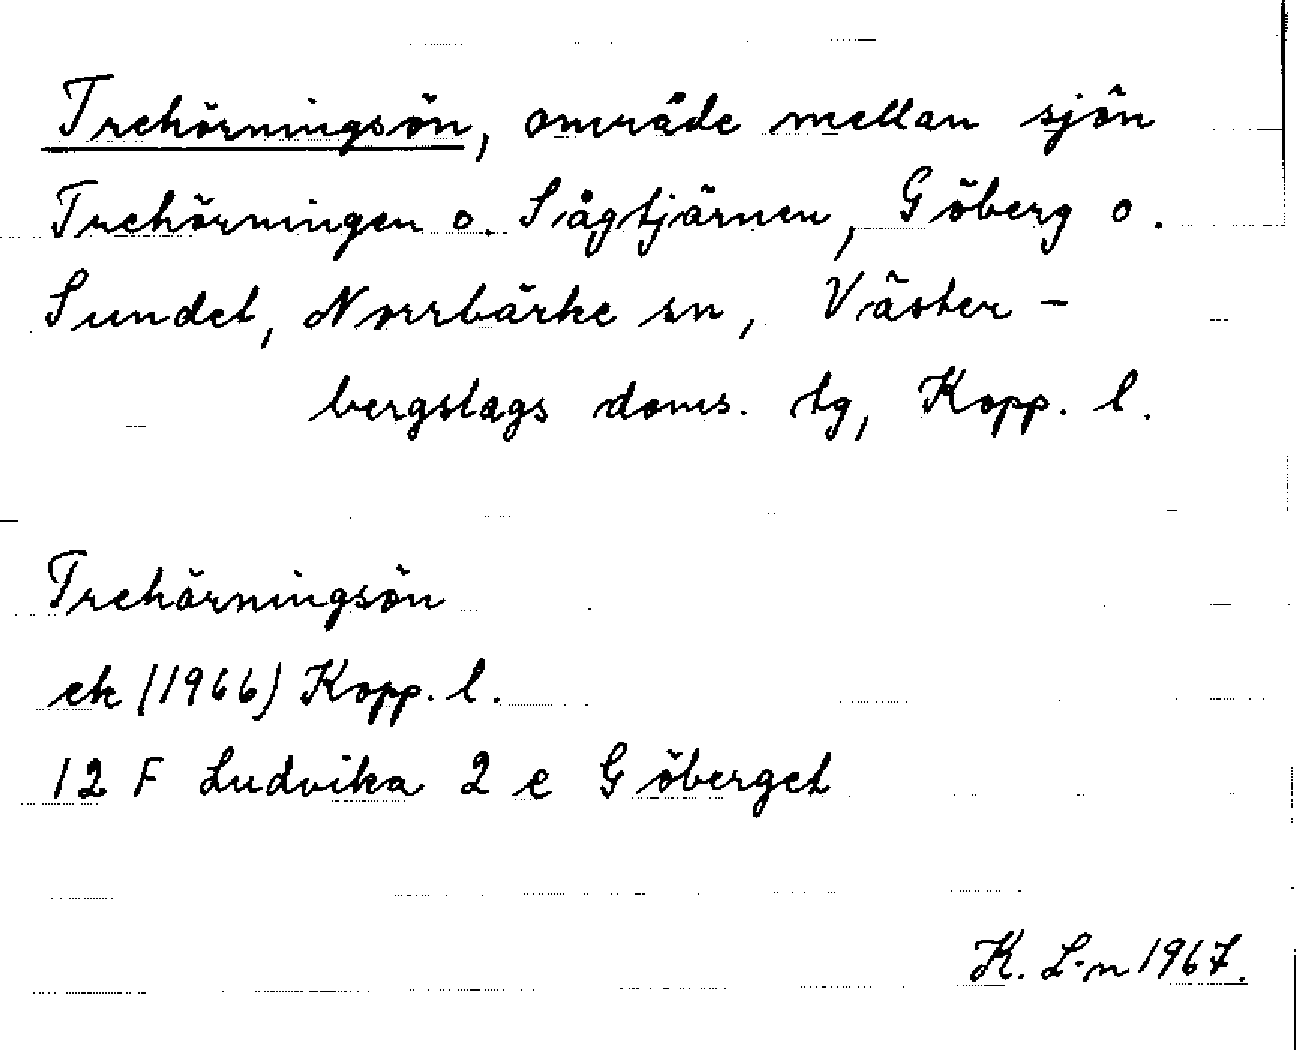 Trehörningsön, område mellan sjön
Trehörningen o. Sågtjärnen, Göberg o.
Sundet, Norrbärke sn, Väster-
bergslags doms. tg, Kopp. l.
Trehörningsön
ek (1966) Kopp. l.
12 F Ludvika 2 e Göberget
K. L-n 1967.